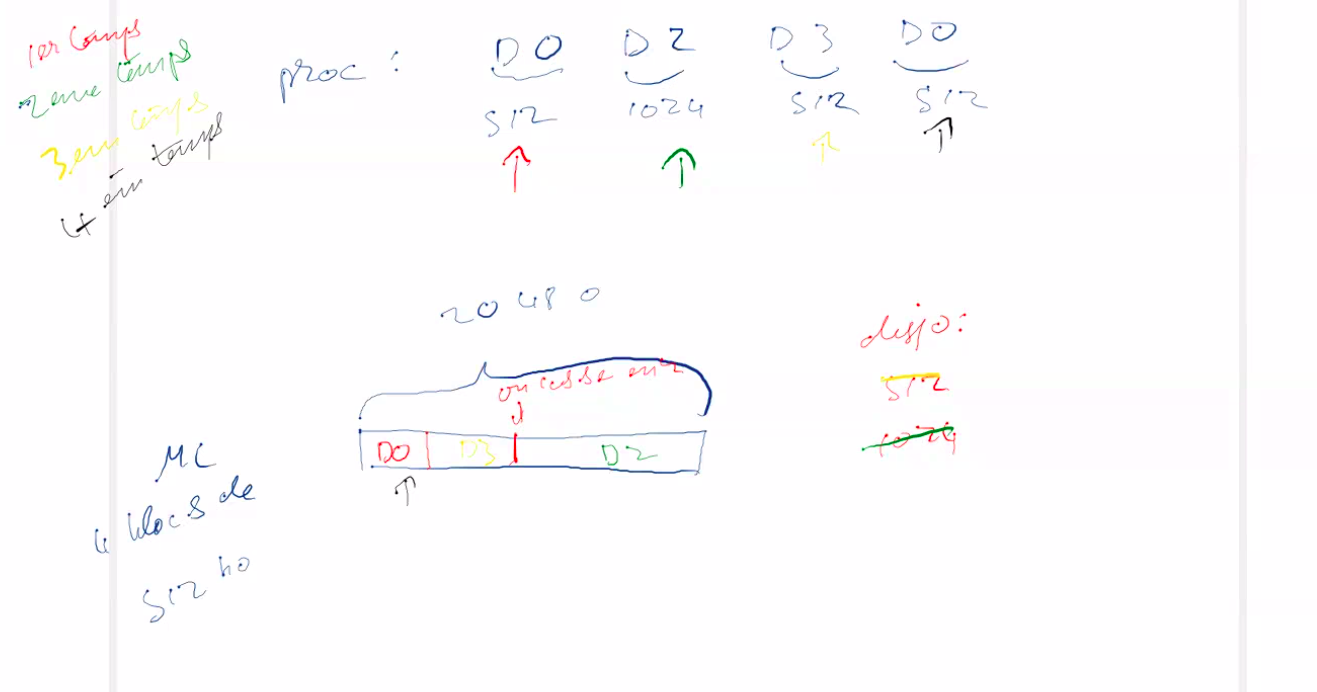 1er temps
2eme temps
3em temps
4 em temps
proc :
D0 D2 D3 D0
512 1024 512 512
2048 0
on casse en 2
dispo:
512
1024
D0 D3 D2
MC
4 blocs de
512 ko